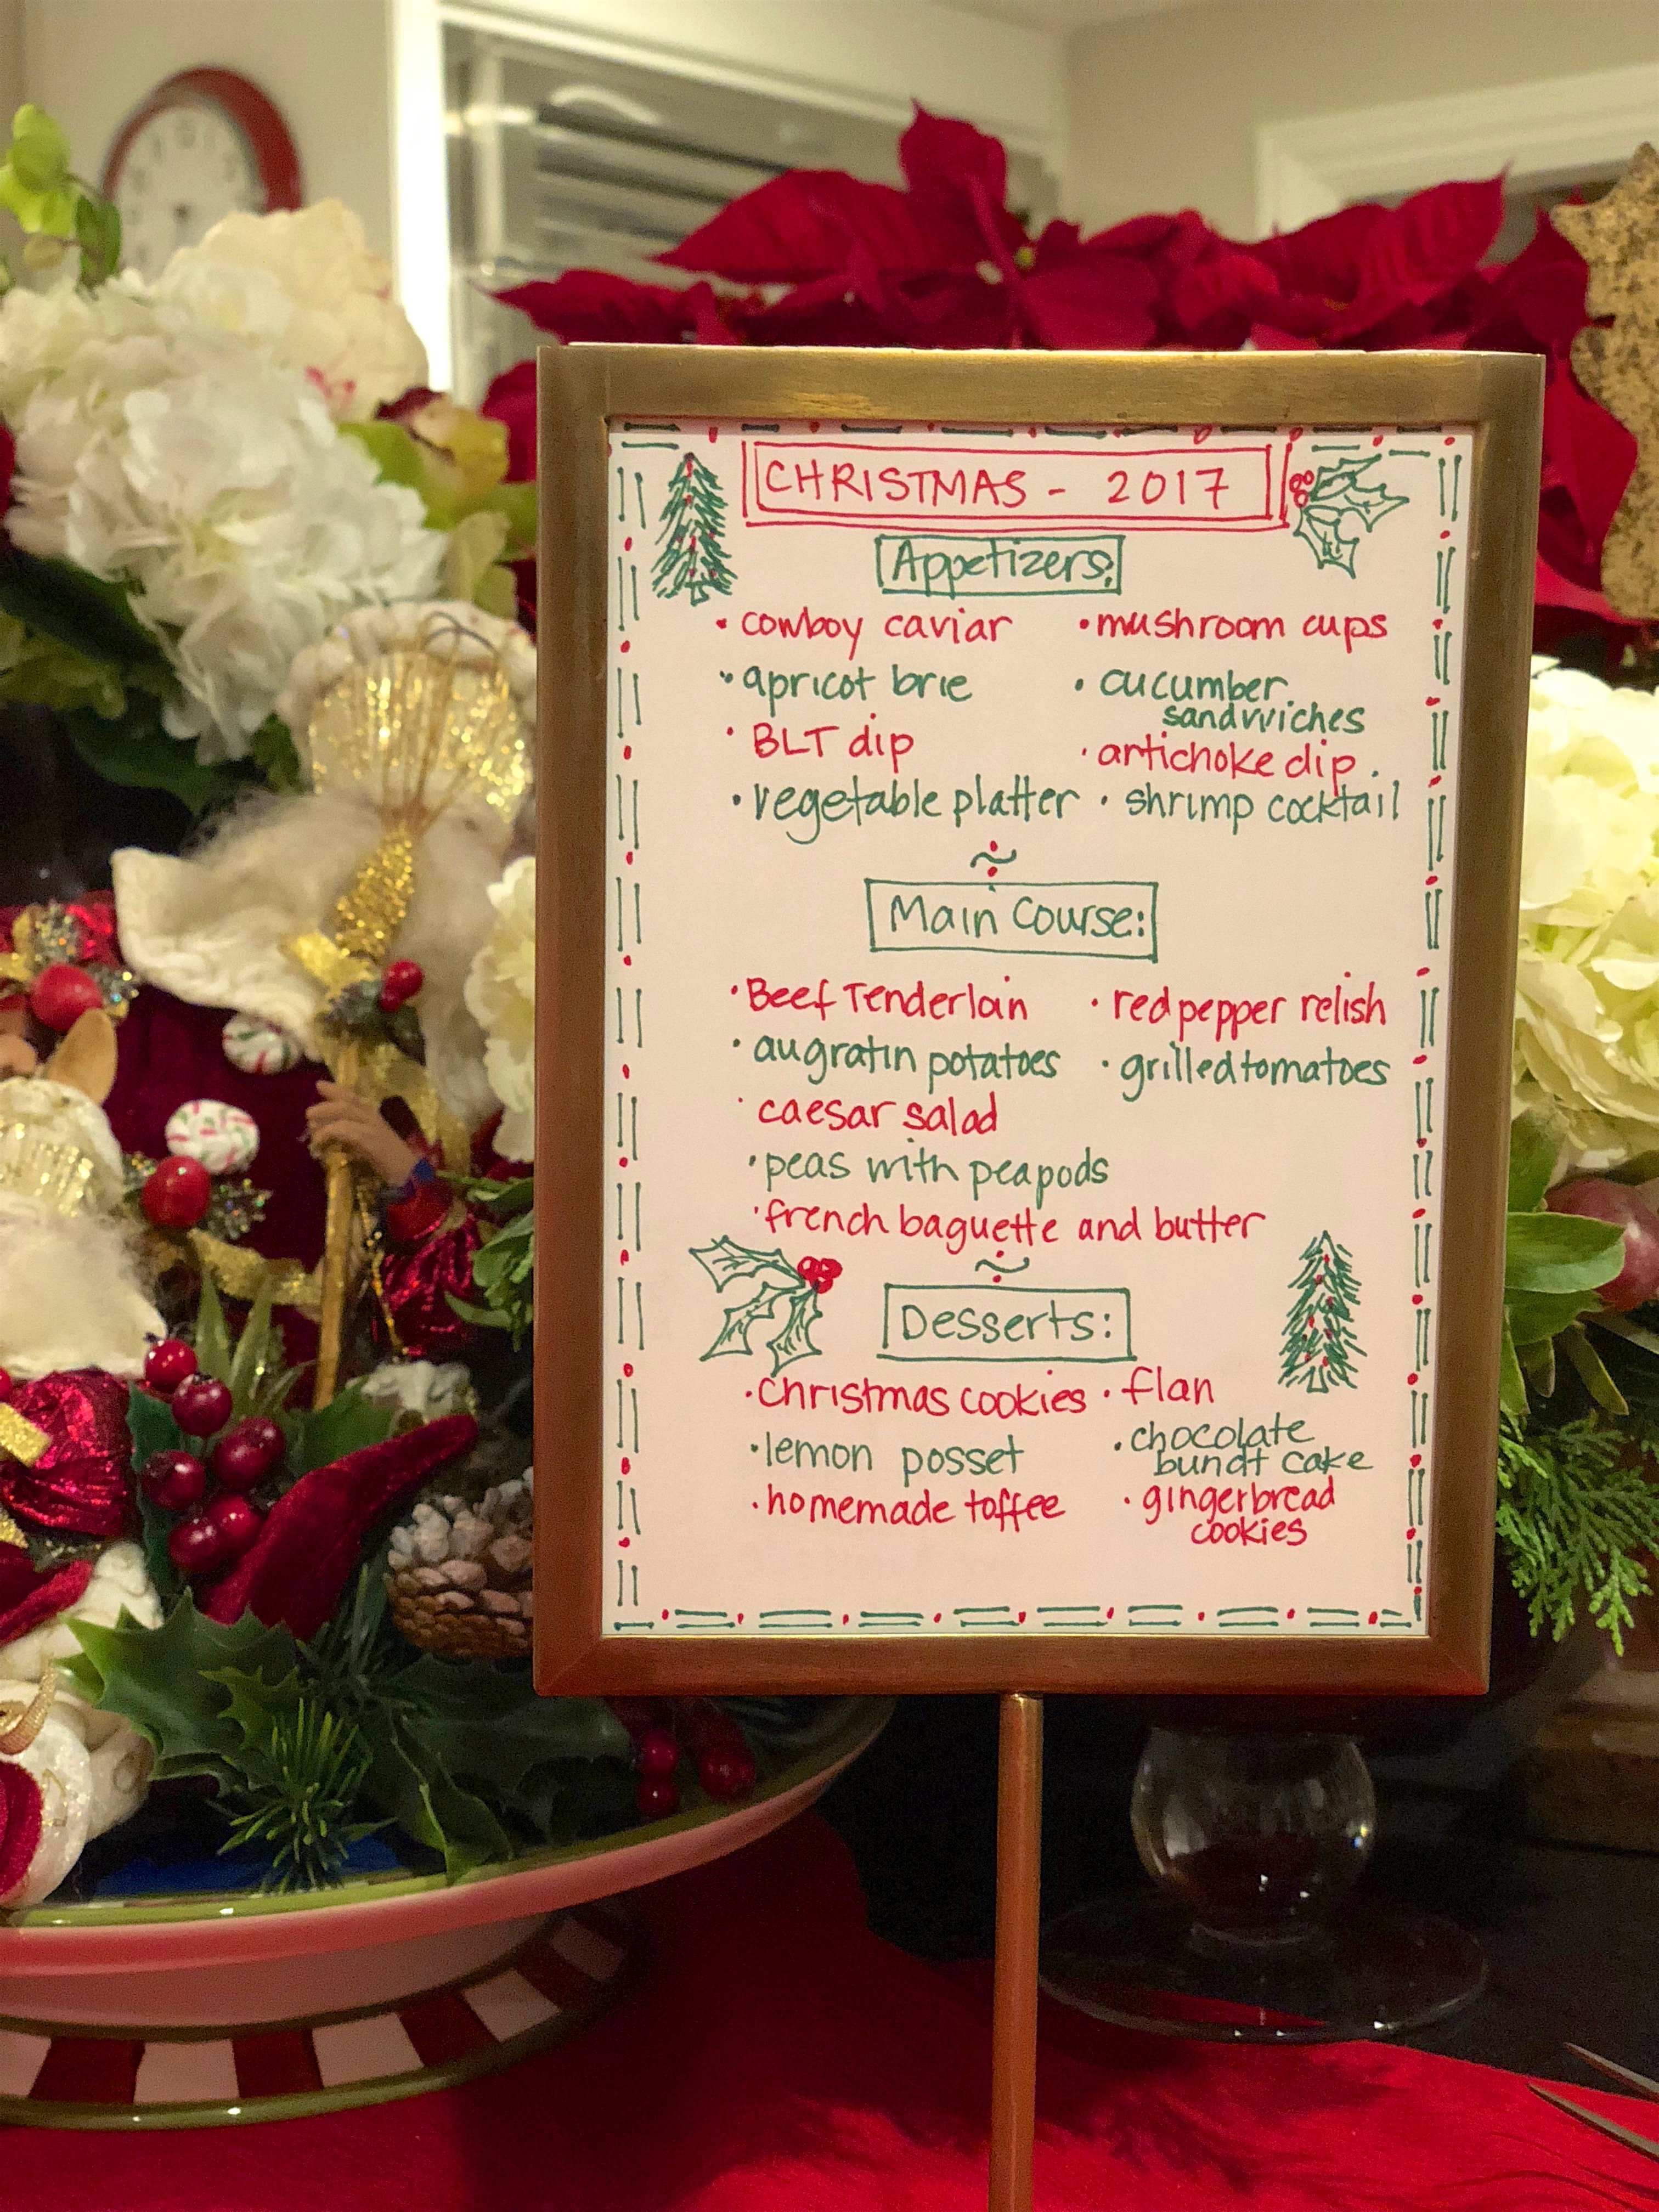 CHRISTMAS - 2017
Appetizers:
• cowboy caviar • mushroom cups
• apricot brie • cucumber
sandwiches
• BLT dip • artichoke dip
• vegetable platter • shrimp cocktail
Main Course:
• Beef Tenderloin • red pepper relish
• augratin potatoes • grilled tomatoes
• caesar salad
• peas with pea pods
• french baguette and butter
Desserts:
• Christmas cookies • flan
• lemon posset • chocolate
bundt cake
• homemade toffee • gingerbread
cookies